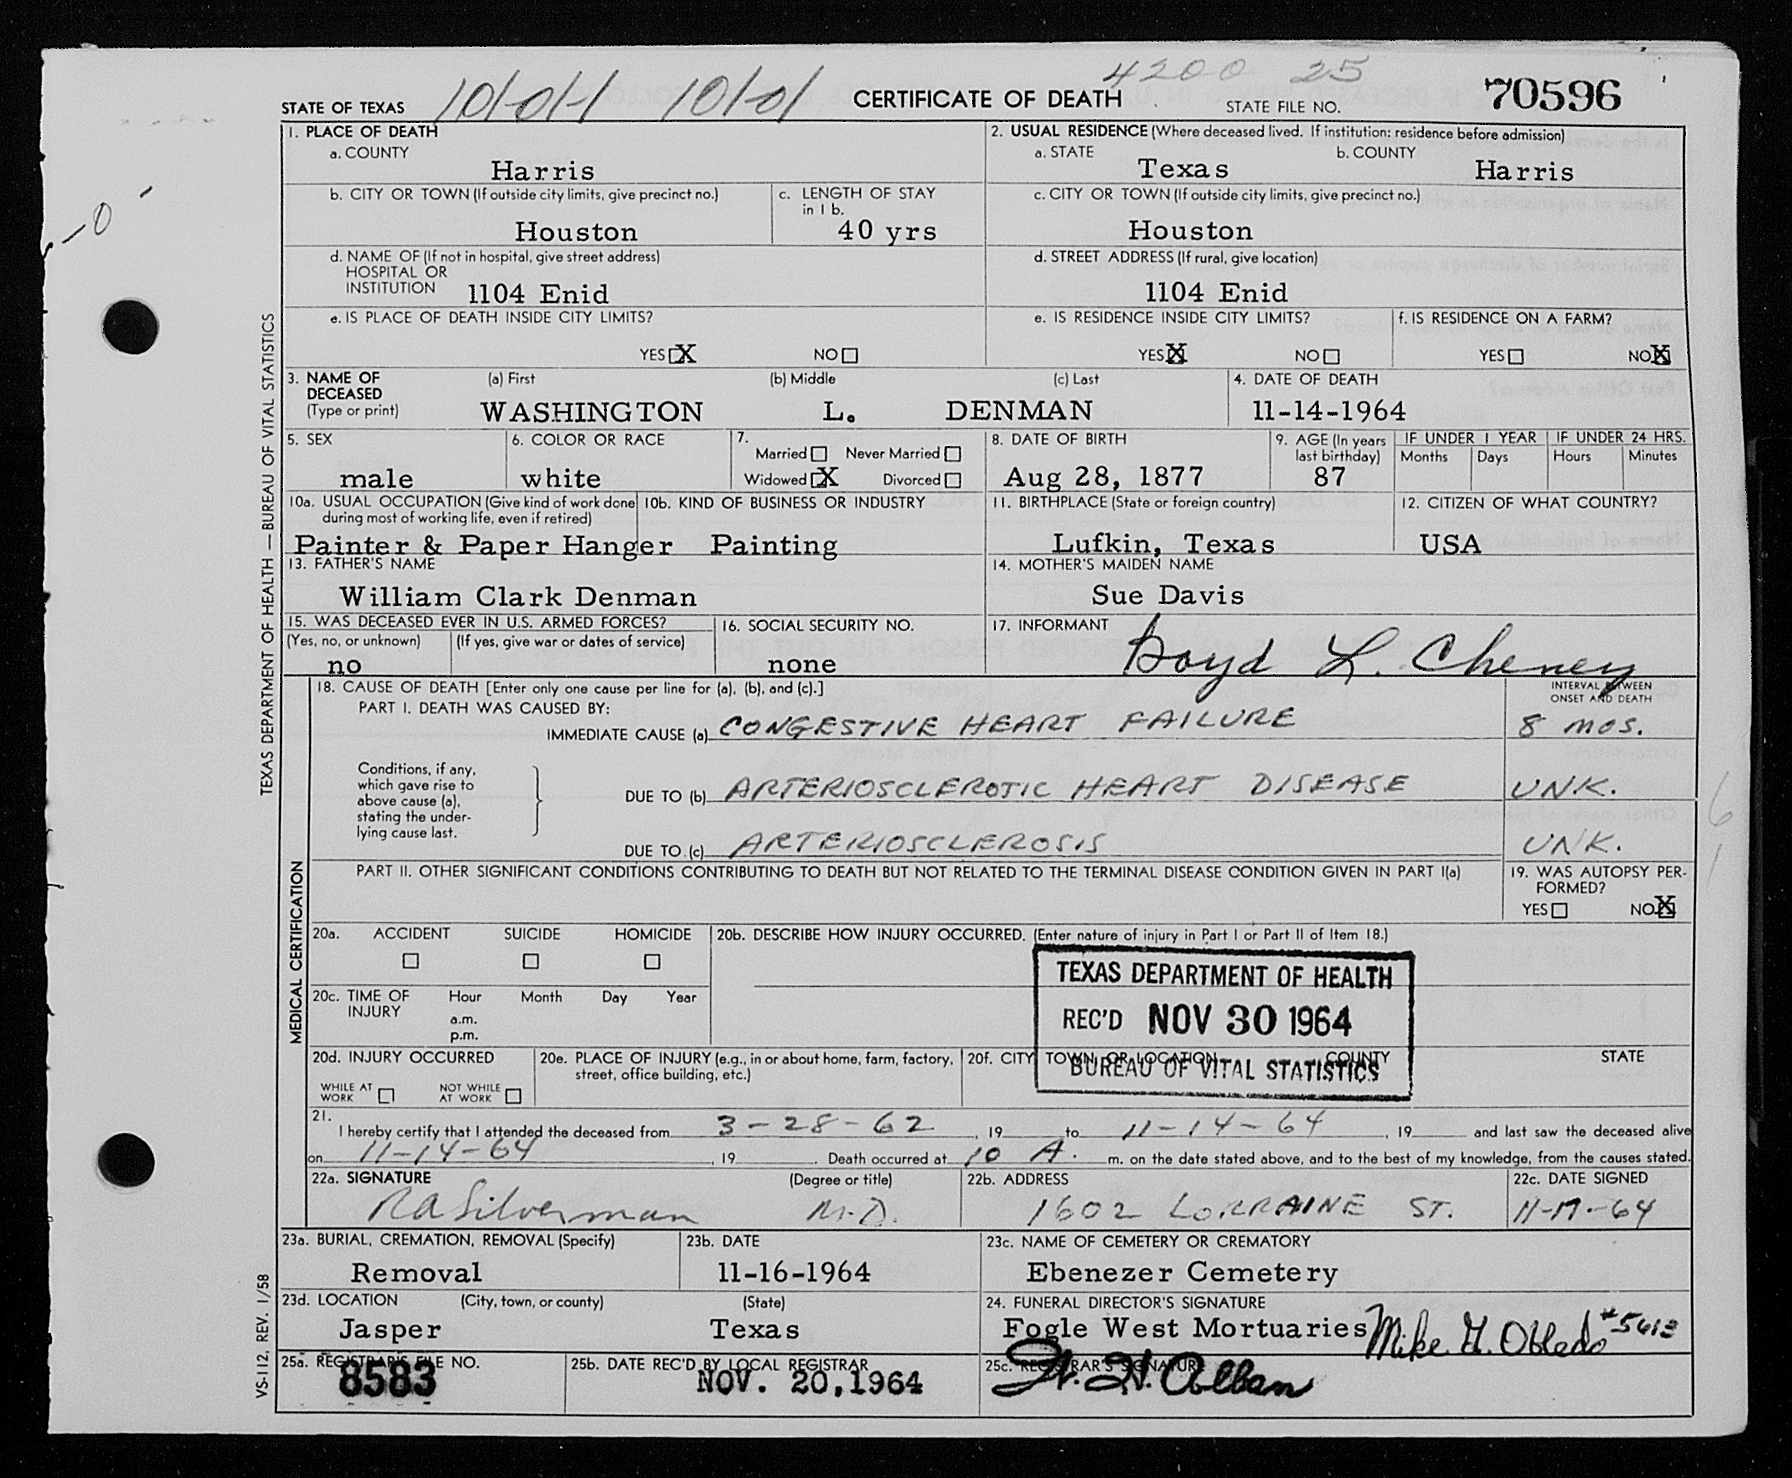 4200 25
STATE OF TEXAS 101-01-1 101-01 CERTIFICATE OF DEATH STATE FILE NO. 70596
1. PLACE OF DEATH
a. COUNTY
Harris
2. USUAL RESIDENCE (Where deceased lived. If institution: residence before admission)
a. STATE b. COUNTY
Texas Harris
b. CITY OR TOWN (If outside city limits, give precinct no.)
Houston
c. LENGTH OF STAY
in 1 b.
40 yrs
c. CITY OR TOWN (If outside city limits, give precinct no.)
Houston
d. NAME OF (If not in hospital, give street address)
HOSPITAL OR
INSTITUTION 1104 Enid
d. STREET ADDRESS (If rural, give location)
1104 Enid
e. IS PLACE OF DEATH INSIDE CITY LIMITS?
YES X NO
e. IS RESIDENCE INSIDE CITY LIMITS?
YES X NO
f. IS RESIDENCE ON A FARM?
YES NO X
3. NAME OF (a) First (b) Middle (c) Last
DECEASED
(Type or print) WASHINGTON L. DENMAN
4. DATE OF DEATH
11-14-1964
5. SEX
male
6. COLOR OR RACE
white
7.
Married Never Married
Widowed X Divorced
8. DATE OF BIRTH
Aug 28, 1877
9. AGE (In years
last birthday)
87
IF UNDER 1 YEAR
Months Days
IF UNDER 24 HRS.
Hours Minutes
10a. USUAL OCCUPATION (Give kind of work done
during most of working life, even if retired)
Painter & Paper Hanger
10b. KIND OF BUSINESS OR INDUSTRY
Painting
11. BIRTHPLACE (State or foreign country)
Lufkin, Texas
12. CITIZEN OF WHAT COUNTRY?
USA
13. FATHER'S NAME
William Clark Denman
14. MOTHER'S MAIDEN NAME
Sue Davis
15. WAS DECEASED EVER IN U.S. ARMED FORCES?
(Yes, no, or unknown) (If yes, give war or dates of service)
no
16. SOCIAL SECURITY NO.
none
17. INFORMANT
Boyd L. Cheney
18. CAUSE OF DEATH [Enter only one cause per line for (a), (b), and (c).]
PART I. DEATH WAS CAUSED BY:
INTERVAL BETWEEN
ONSET AND DEATH
IMMEDIATE CAUSE (a) CONGESTIVE HEART FAILURE 8 mos.
Conditions, if any,
which gave rise to
above cause (a),
stating the under-
lying cause last.
DUE TO (b) ARTERIOSCLEROTIC HEART DISEASE UNK.
DUE TO (c) ARTERIOSCLEROSIS UNK.
PART II. OTHER SIGNIFICANT CONDITIONS CONTRIBUTING TO DEATH BUT NOT RELATED TO THE TERMINAL DISEASE CONDITION GIVEN IN PART I(a)
19. WAS AUTOPSY PER-
FORMED?
YES NO X
20a. ACCIDENT SUICIDE HOMICIDE
20b. DESCRIBE HOW INJURY OCCURRED. (Enter nature of injury in Part I or Part II of Item 18.)
20c. TIME OF Hour Month Day Year
INJURY
a.m.
p.m.
TEXAS DEPARTMENT OF HEALTH
REC'D NOV 30 1964
BUREAU OF VITAL STATISTICS
20d. INJURY OCCURRED
WHILE AT
WORK
NOT WHILE
AT WORK
20e. PLACE OF INJURY (e.g., in or about home, farm, factory,
street, office building, etc.)
20f. CITY, TOWN, OR LOCATION COUNTY STATE
21.
I hereby certify that I attended the deceased from 3-28-62, 19 to 11-14-64, 19 and last saw the deceased alive
on 11-14-64, 19 . Death occurred at 10 A. m. on the date stated above, and to the best of my knowledge, from the causes stated.
22a. SIGNATURE (Degree or title)
RA Silverman M.D.
22b. ADDRESS
1602 LORRAINE ST.
22c. DATE SIGNED
11-17-64
23a. BURIAL, CREMATION, REMOVAL (Specify)
Removal
23b. DATE
11-16-1964
23c. NAME OF CEMETERY OR CREMATORY
Ebenezer Cemetery
23d. LOCATION (City, town, or county) (State)
Jasper Texas
24. FUNERAL DIRECTOR'S SIGNATURE
Fogle West Mortuaries Mike G. Obledo #5613
25a. REGISTRAR'S FILE NO.
8583
25b. DATE REC'D BY LOCAL REGISTRAR
NOV. 20, 1964
25c. REGISTRAR'S SIGNATURE
W. H. Alban
TEXAS DEPARTMENT OF HEALTH — BUREAU OF VITAL STATISTICS
MEDICAL CERTIFICATION
VS-112, REV. 1/58